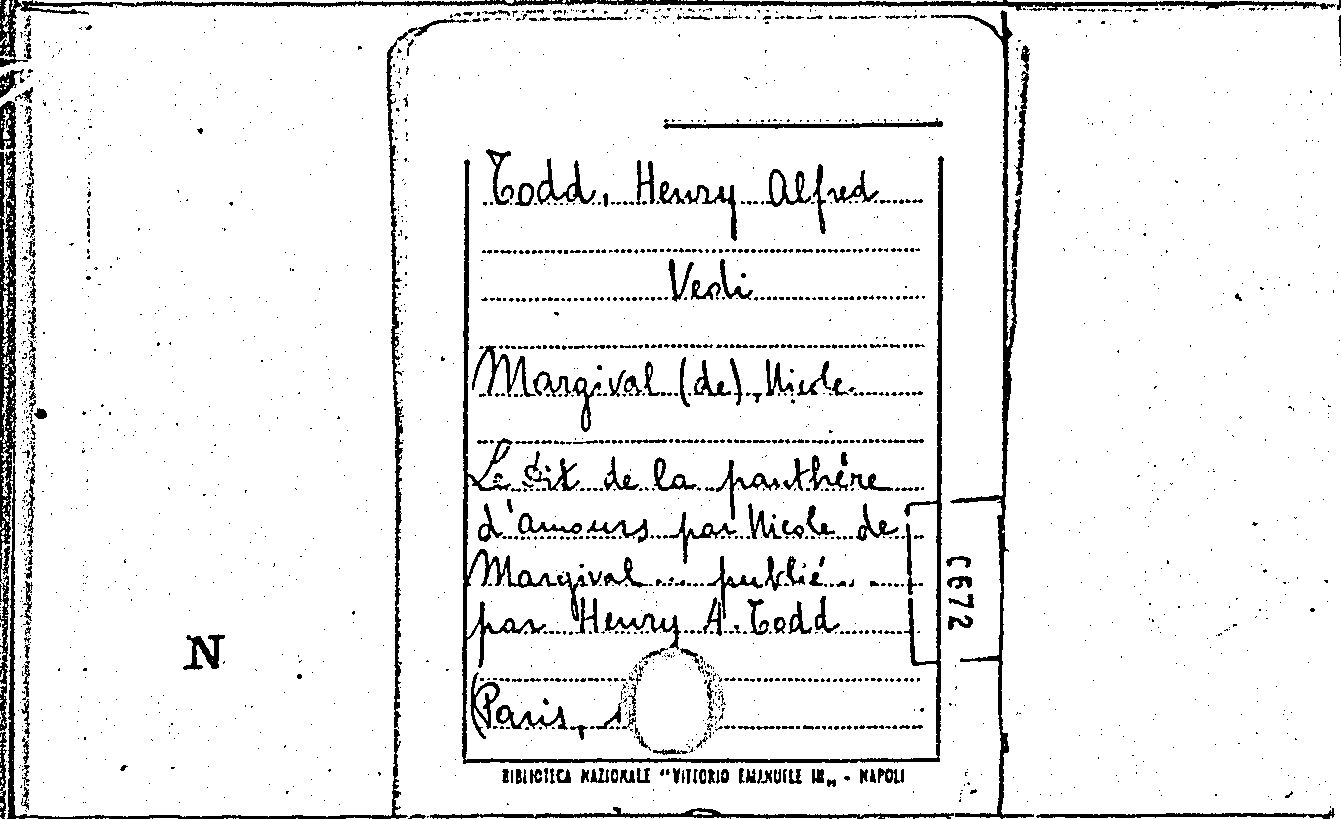 Todd, Henry Alfred
Vedi
Margival (de), Nicole.
Le dit de la panthère
d'amours par Nicole de
Margival... publié...
par Henry A. Todd
Paris,
C672
N
BIBLIOTECA NAZIONALE "VITTORIO EMANUELE III„ - NAPOLI